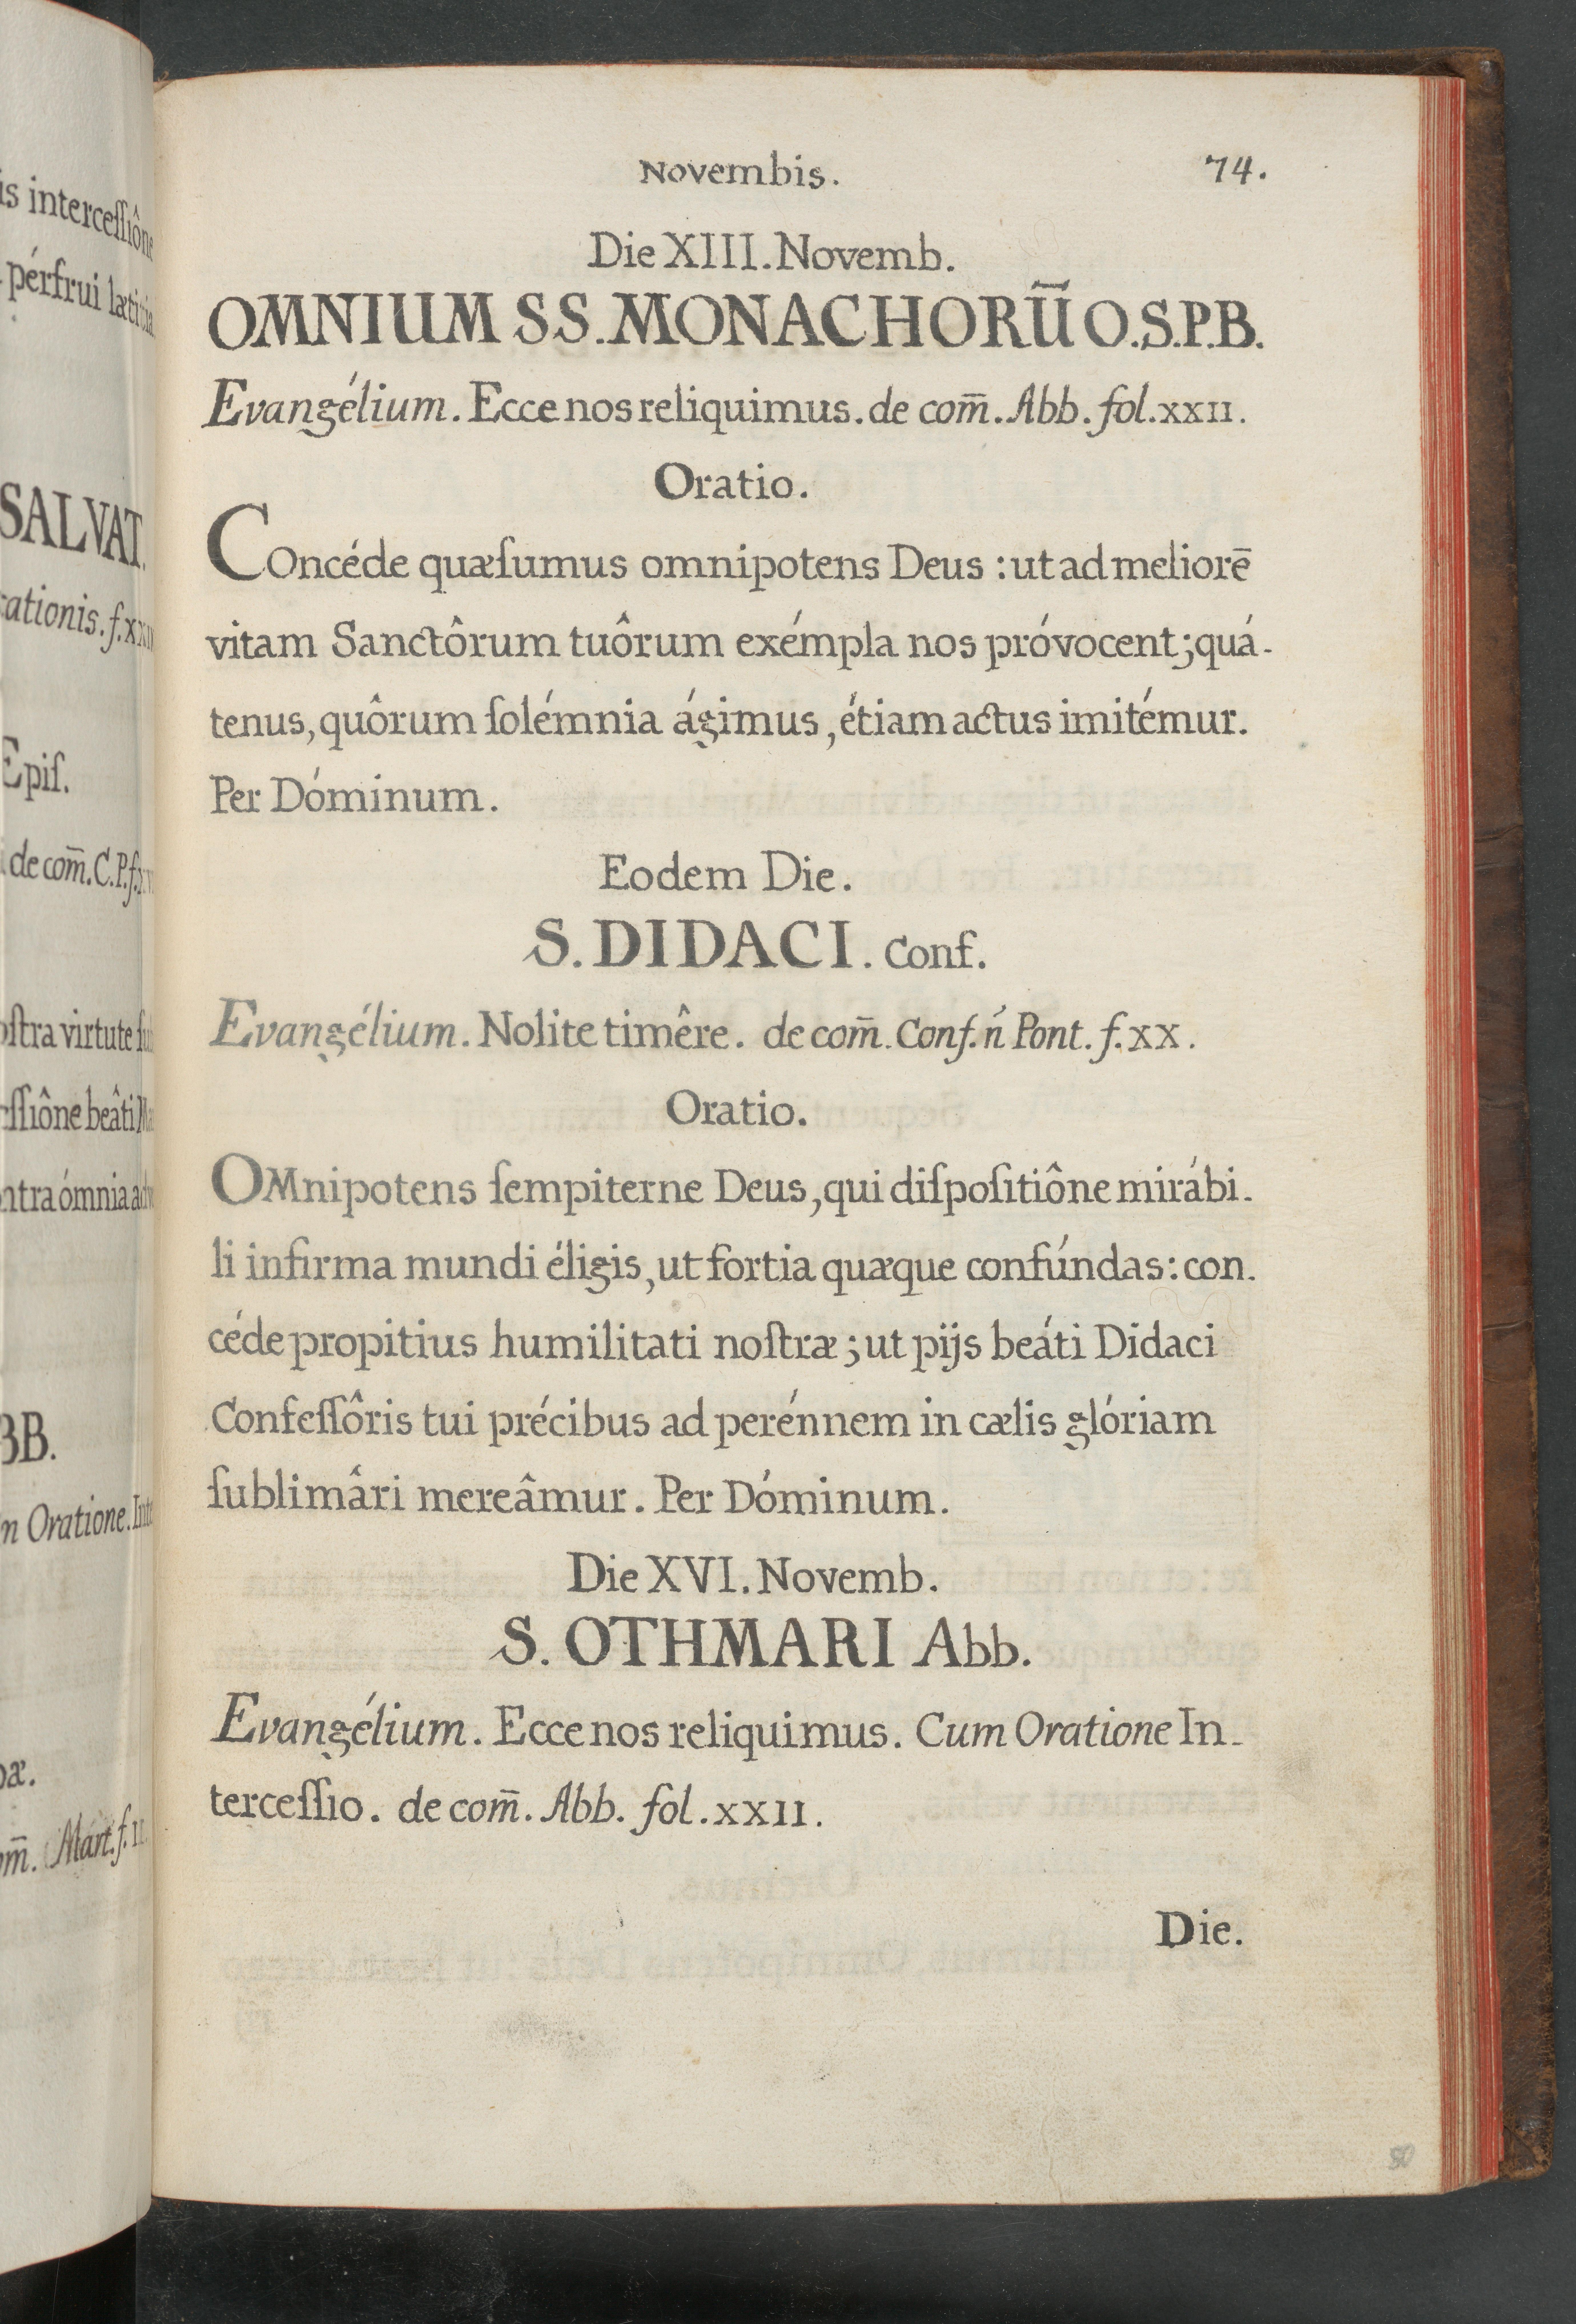 is intercessiône
pérfrui lætitia
SALVAT.
ationis. f. xxii
Epiſ.
de com̄. C. P. f.
oſtra virtute
ſſiône beâti
ntra ómnia
BB.
n Oratione. Inte
æ.
om̄. Mart. f. II
Novembis.
74.
Die XIII. Novemb.
OMNIUM SS. MONACHORŪ O.S.P.B.
Evangélium. Ecce nos reliquimus. de com̄. Abb. fol. XXII.
Oratio.
COncéde quæſumus omnipotens Deus : ut ad meliorē
vitam Sanctôrum tuôrum exémpla nos próvocent; quá-
tenus, quôrum ſolémnia ágimus, étiam actus imitémur.
Per Dóminum.
Eodem Die.
S. DIDACI. Conf.
Evangélium. Nolite timêre. de com̄. Conf. ń Pont. f. XX.
Oratio.
OMnipotens ſempiterne Deus, qui diſpoſitiône mirábi-
li infirma mundi éligis, ut fortia quæque confúndas: con-
céde propitius humilitati noſtræ; ut pijs beáti Didaci
Confeſſôris tui précibus ad perénnem in cælis glóriam
ſublimâri mereâmur. Per Dóminum.
Die XVI. Novemb.
S. OTHMARI Abb.
Evangélium. Ecce nos reliquimus. Cum Oratione In-
terceſſio. de com̄. Abb. fol. XXII.
Die.
80